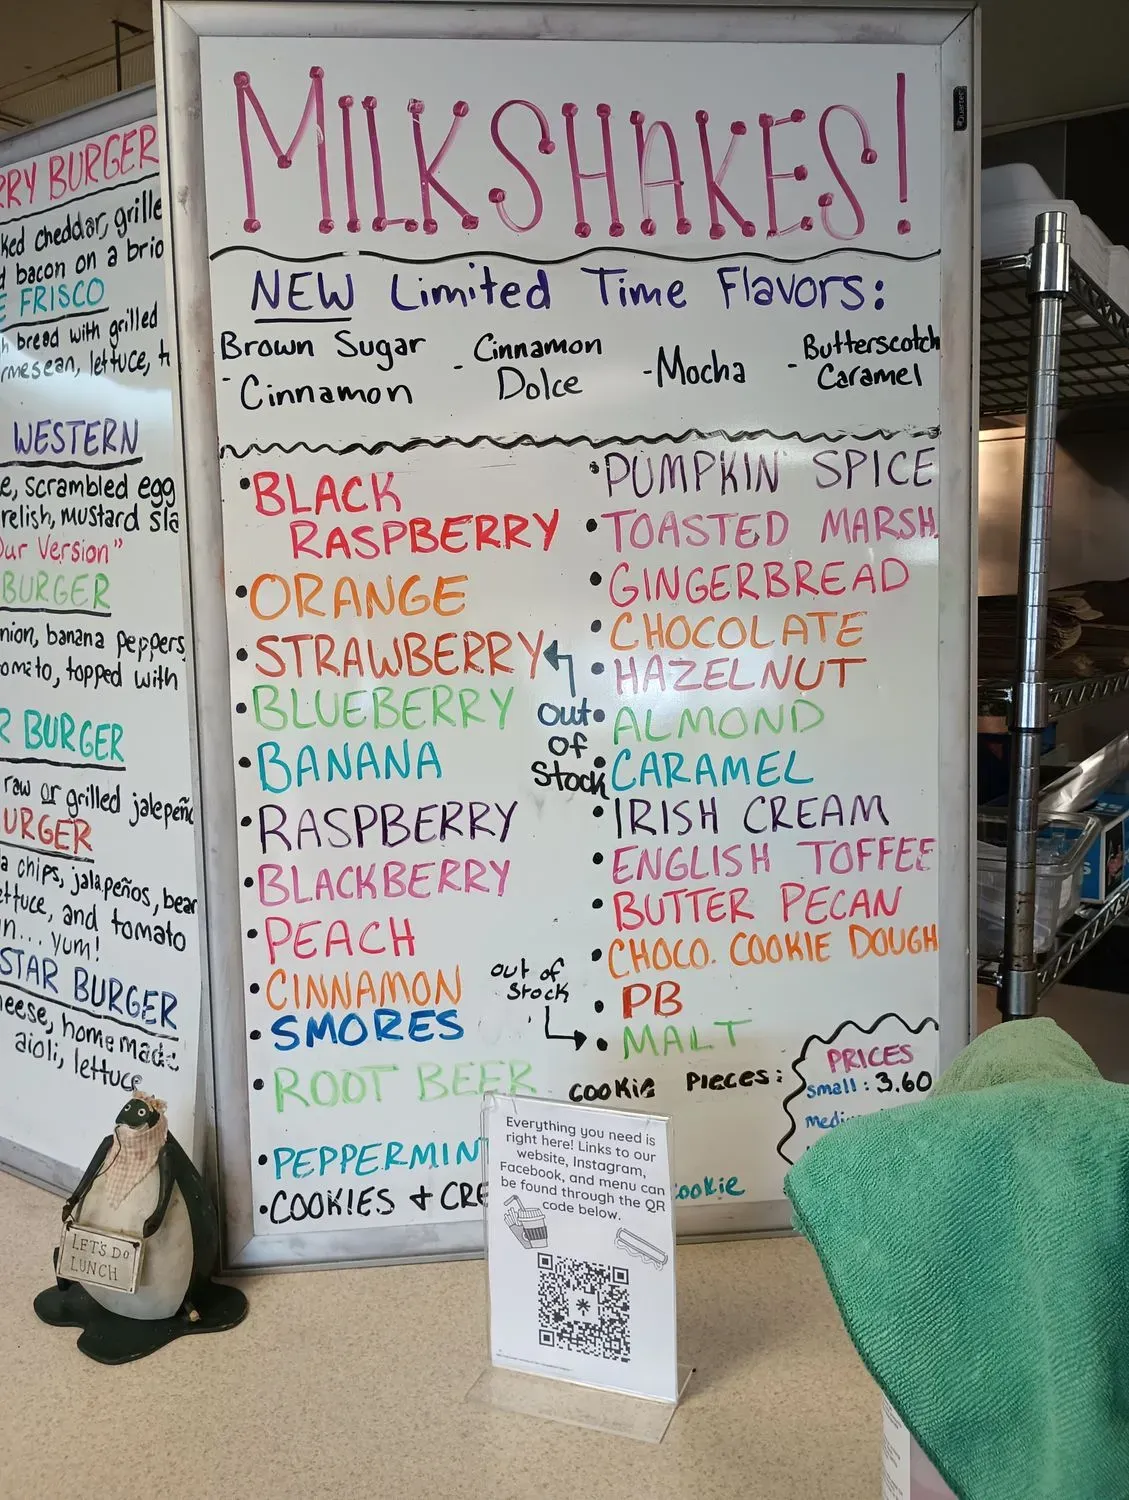 MILKSHAKES!
NEW Limited Time Flavors:
Brown Sugar
- Cinnamon
- Cinnamon
Dolce
- Mocha
- Butterscotch
Caramel
• BLACK
RASPBERRY
• ORANGE
• STRAWBERRY
• BLUEBERRY
• BANANA
• RASPBERRY
• BLACKBERRY
• PEACH
• CINNAMON
• SMORES
• ROOT BEER
• PEPPERMIN
• COOKIES + CRE
out
of
Stock
out of
Stock
• PUMPKIN SPICE
• TOASTED MARSH.
• GINGERBREAD
• CHOCOLATE
• HAZELNUT
• ALMOND
• CARAMEL
• IRISH CREAM
• ENGLISH TOFFEE
• BUTTER PECAN
• CHOCO. COOKIE DOUGH
• PB
• MALT
COOKIE PIECES:
cookie
PRICES
small: 3.60
medi
RRY BURGER
ked cheddar, grille
d bacon on a brio
E FRISCO
h bread with grilled
rmesean, lettuce, t
WESTERN
e, scrambled egg
relish, mustard sla
Our Version"
BURGER
nion, banana peppers,
omato, topped with
R BURGER
raw or grilled jalepeñ
URGER
a chips, jalapeños, bear
ettuce, and tomato
n... yum!
STAR BURGER
heese, homemade
aioli, lettuce
LET'S DO
LUNCH
Everything you need is
right here! Links to our
website, Instagram,
Facebook, and menu can
be found through the QR
code below.
Quartet